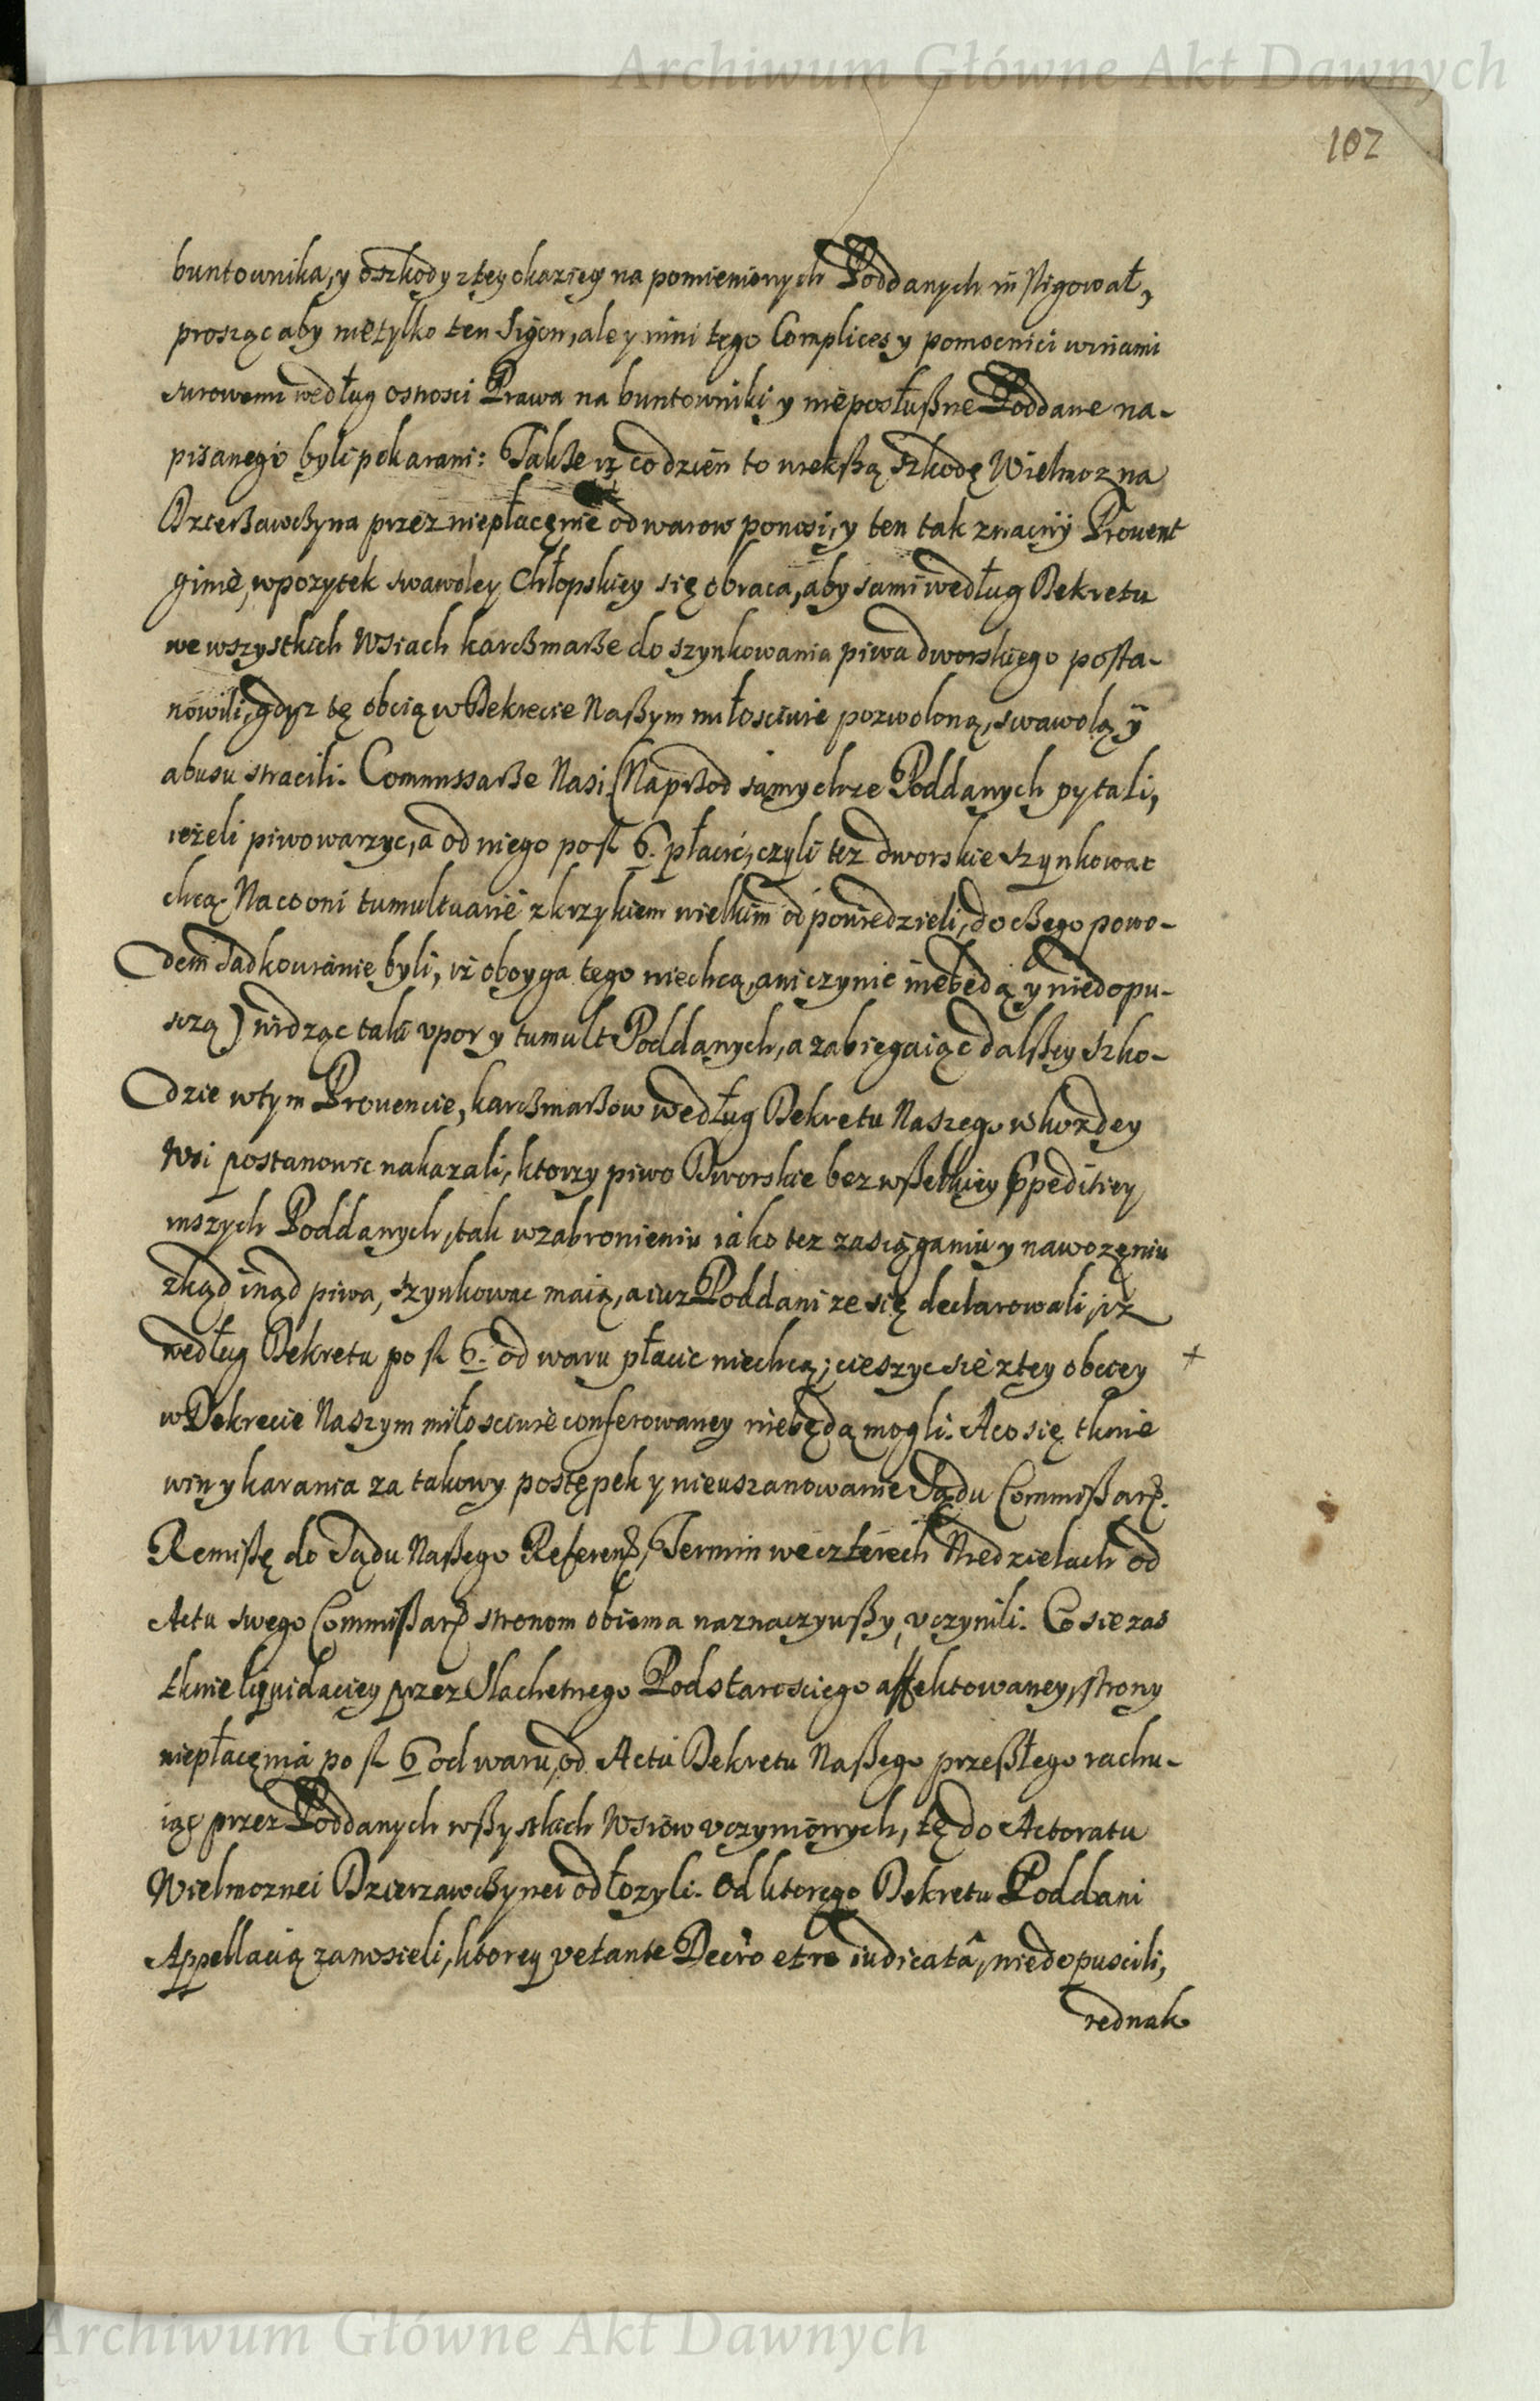 Archiwum Główne Akt Dawnych
102
buntownika, y o szkody z tey okaziey na pomienionych Poddanych instigował,
prosząc aby nietylko ten Sigon, ale y inni tego Complices y pomocnici winami
surowemi według ostrosci Prawa na buntowniki y nieposłußne Poddane na-
pisanego byli pokarani: Takße iż co dzien to wiekßą szkodę Wielmozna
Dzierßawcßyna przez niepłacęnie od warow ponosi, y ten tak znaczny Prouent
ginie, w pozytek swawoley Chłopskiey się obraca, aby sami według Dekretu
we wszystkich Wsiach karcßmarße do szynkowania piwa dworskiego posta-
nowili, gdyz tę obcią w Dekrecie Naßym miłosciwie pozwoloną, swawolą y
abusu stracili. Commissarße Nasi (Naprßod samychze Poddanych pytali,
ieżeli piwo warzyc, a od niego po fl 6. płacić, czyli też dworskie szynkowac
chcą. Na co oni tumultuarie z krzykiem wielkim odpowiedzieli, do cßego powo-
dem Sadkowianie byli, iż oboyga tego niechcą, ani czynic niebędą y niedopu-
szczą) widząc taki vpor y tumult Poddanych, a zabiegaiąc dalßey szko-
dzie w tym Prouencie, karcßmarßow według Dekretu Naszego w kozdey
Wsi postanowic nakazali, ktorzy piwo Dworskie bez wßelkiey Expeditiey
inszych Poddanych, tak w zabronieniu iako tez zasiąganiu y nawozęniu
zkąd inąd piwa, szynkowac maią, a iuz Poddani ze się declarowali, iz
według Dekretu po fl 6. od waru płacic niechcą; cieszyc sie z tey obciey +
w Dekrecie Naszym miłosciwie conferowaney niebędą mogli. A co się tknie
winy karania za takowy postępek y nieuszanowanie Sądu Commißar.
Remißę do Sądu Naßego Referen, Termin we czterech Niedzielach od
Actu swego Commißar stronom obiema naznaczywßy, vczynili. Co sie zas
tknie liquidaciey przez Slachetnego Podstarosciego affektowaney, strony
niepłacęnia po fl 6 od waru, od Actu Dekretu Naßego przeßłego rachu-
iąc przez Poddanych wßystkich Wsiow vczynionych, tę do Actoratu
Wielmoznei Dzierzawcßynei odłozyli. Od ktorego Dekretu Poddani
Appellacią zanosieli, ktorey vetante Decro et re iudicatâ, niedopuscili,
iednak
Archiwum Główne Akt Dawnych